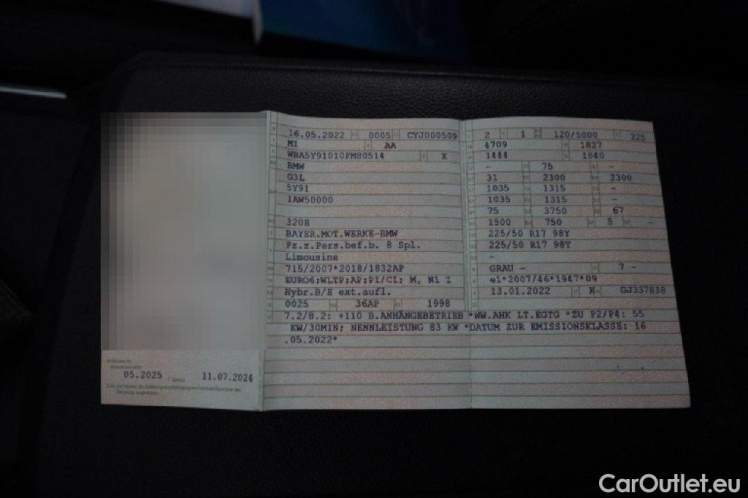 16.05.2022 0005 CYJ000509
M1 AA
X
BMW
G3L
5Y91
1AW50000
320E
BAYER.MOT.WERKE-BMW
Fz.z.Pers.bef.b. 8 Spl.
Limousine
715/2007*2018/1832AP
EURO6;WLTP;AP;PI/CI; M, N1 I
Hybr.B/E ext.aufl.
0025 36AP 1998
2 1 120/5000 225
4709 1827
1444 1840
- 75 -
31 2300 2300
1035 1315 -
1035 1315 -
75 3750 67
1500 750 5 -
225/50 R17 98Y
225/50 R17 98Y
-
GRAU - 7 -
e1*2007/46*1947*09
13.01.2022 K- GJ337838
7.2/8.2: +110 B.ANHÄNGEBETRIEB *NW.AHK LT.EGTG *ZU P2/P4: 55
KW/30MIN; NENNLEISTUNG 83 KW *DATUM ZUR EMISSIONSKLASSE: 16
.05.2022*
05.2025 11.07.2024
CarOutlet.eu